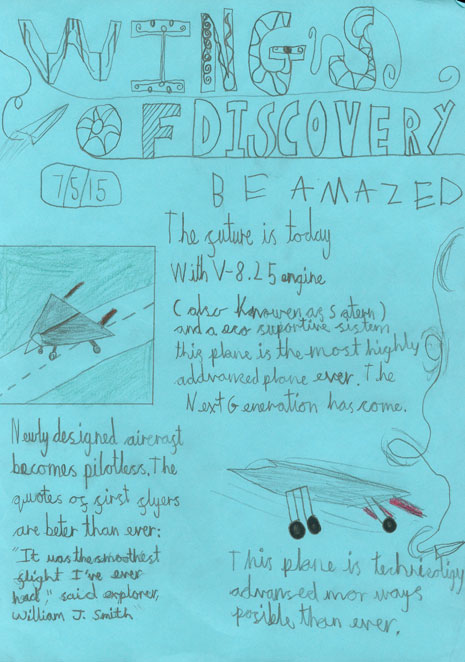 WINGS
OF DISCOVERY
7/5/15
BE AMAZED
The future is today
With V-8.25 engine
(also Knowen as Satern)
and a eco suportive sistem
this plane is the most highly
addvansed plane ever. The
Next Generation has come.
Newly designed aircraft
becomes pilotless. The
quotes of first flyers
are beter than ever:
"It was the smoothest
flight I've ever
had," said explorer,
William J. Smith"
This plane is techniceligy
advansed mor ways
posible than ever.